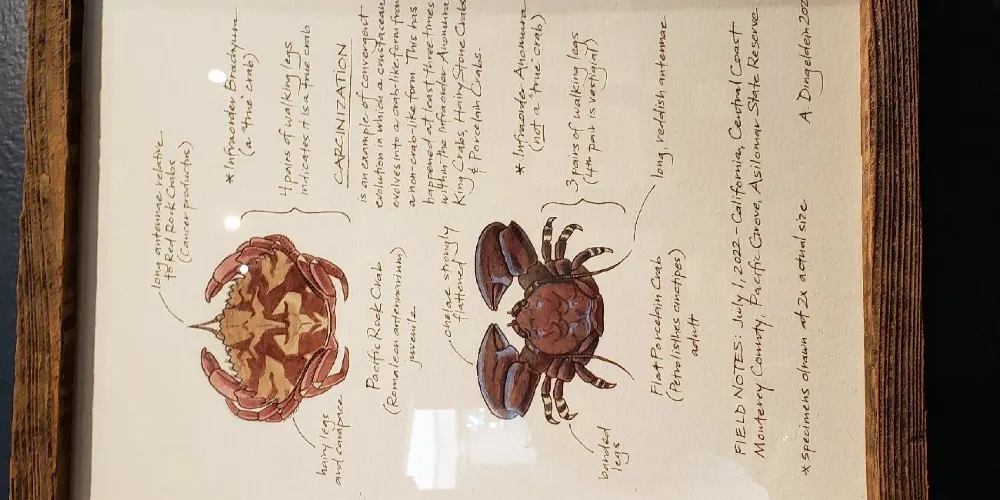 long antennae relative
to Red Rock Crabs
(Cancer productus)
* Infraorder Brachyura
(a "true crab")
4 pairs of walking legs
indicates it is a true crab
hairy legs
and carapace
Pacific Rock Crab
(Romaleon antennarium)
juvenile
CARCINIZATION
is an example of convergent
evolution in which a crustacean
evolves into a crablike form from
a non-crab-like form. This has
happened at least three times
within the Infraorder Anomura
King Crabs, Hairy Stone Crabs
& Porcelain Crabs.
chelae strongly
flattened
* Infraorder Anomura
(not a "true crab")
3 pairs of walking legs
(4th pair is vestigial)
long, reddish antennae
banded
legs
Flat Porcelain Crab
(Petrolisthes cinctipes)
adult
FIELD NOTES: July 1, 2022 - California, Central Coast
Monterey County, Pacific Grove, Asilomar State Reserve
* specimens drawn at 2x actual size
A Dingeldein